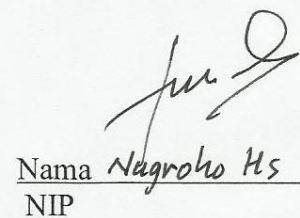 Nama Nugroho Hs
NIP